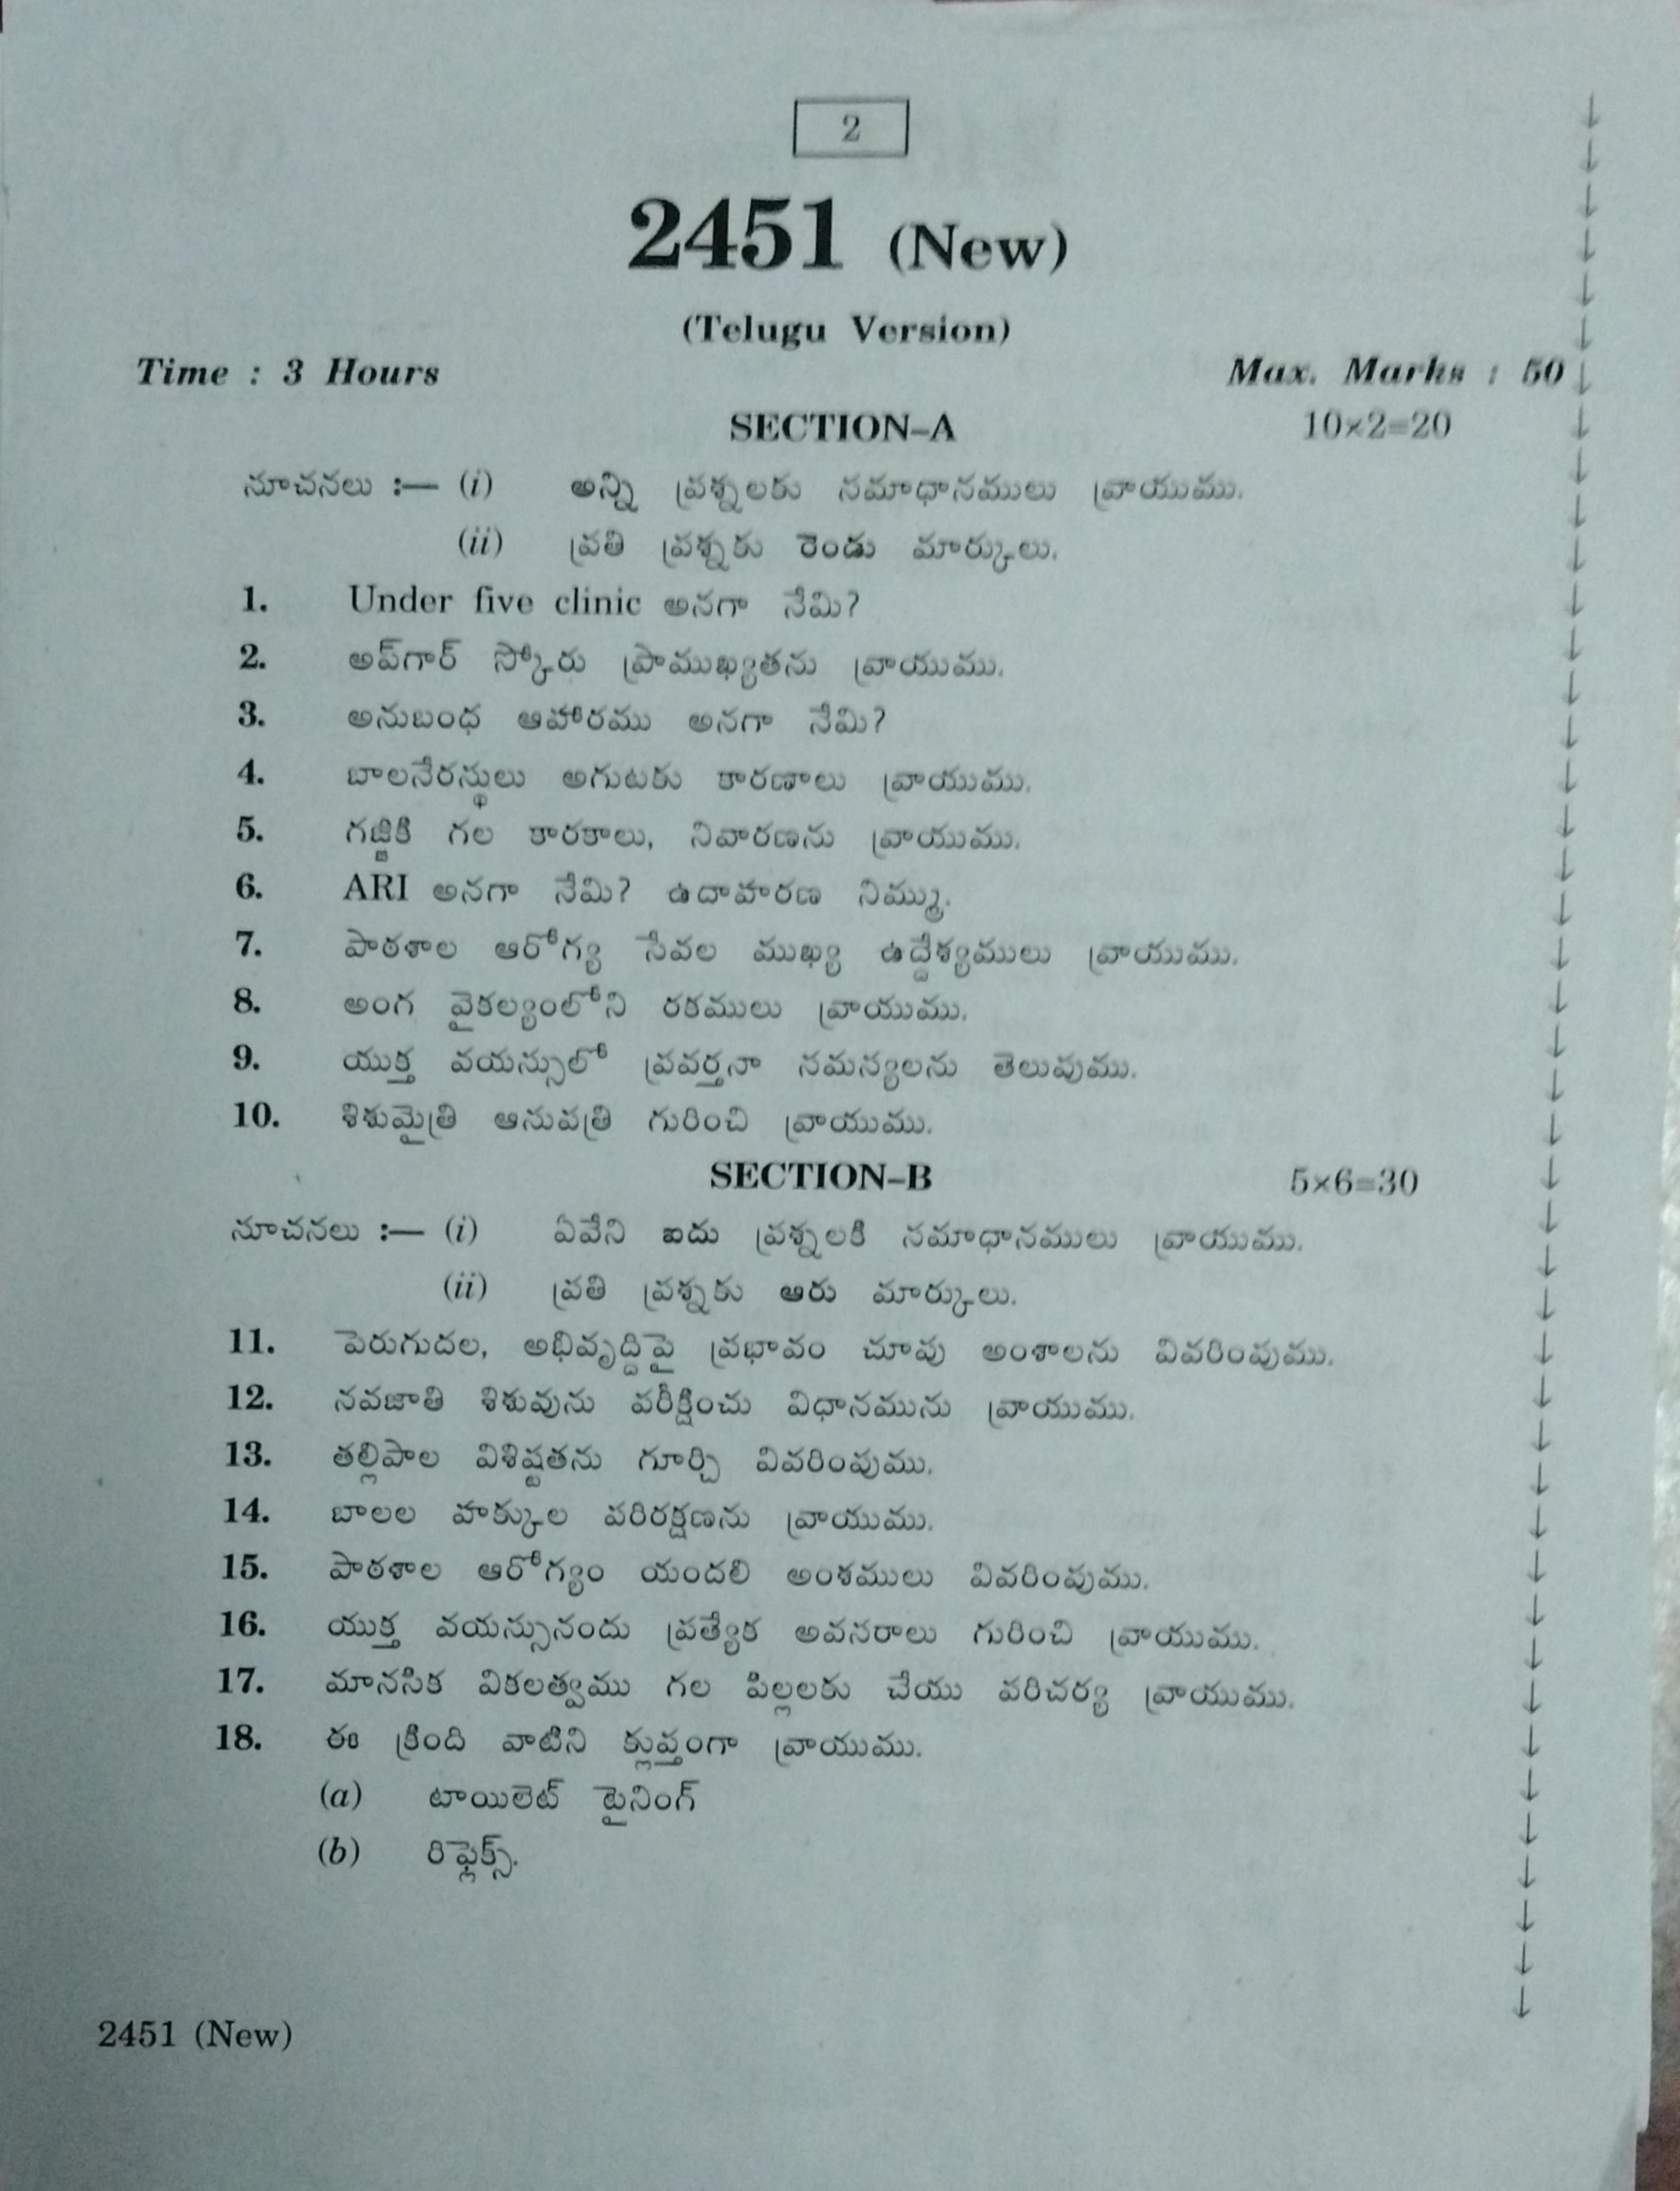 2
2451 (New)
(Telugu Version)
Time : 3 Hours Max. Marks : 50
SECTION–A 10×2=20
సూచనలు :— (i) అన్ని ప్రశ్నలకు సమాధానములు వ్రాయుము.
(ii) ప్రతి ప్రశ్నకు రెండు మార్కులు.
1. Under five clinic అనగా నేమి?
2. అప్‌గార్ స్కోరు ప్రాముఖ్యతను వ్రాయుము.
3. అనుబంధ ఆహారము అనగా నేమి?
4. బాలనేరస్థులు అగుటకు కారణాలు వ్రాయుము.
5. గజ్జికి గల కారకాలు, నివారణను వ్రాయుము.
6. ARI అనగా నేమి? ఉదాహరణ నిమ్ము.
7. పాఠశాల ఆరోగ్య సేవల ముఖ్య ఉద్దేశ్యములు వ్రాయుము.
8. అంగ వైకల్యంలోని రకములు వ్రాయుము.
9. యుక్త వయస్సులో ప్రవర్తనా సమస్యలను తెలుపుము.
10. శిశుమైత్రి ఆసుపత్రి గురించి వ్రాయుము.
SECTION–B 5×6=30
సూచనలు :— (i) ఏవేని ఐదు ప్రశ్నలకి సమాధానములు వ్రాయుము.
(ii) ప్రతి ప్రశ్నకు ఆరు మార్కులు.
11. పెరుగుదల, అభివృద్ధిపై ప్రభావం చూపు అంశాలను వివరింపుము.
12. నవజాతి శిశువును పరీక్షించు విధానమును వ్రాయుము.
13. తల్లిపాల విశిష్టతను గూర్చి వివరింపుము.
14. బాలల హక్కుల పరిరక్షణను వ్రాయుము.
15. పాఠశాల ఆరోగ్యం యందలి అంశములు వివరింపుము.
16. యుక్త వయస్సునందు ప్రత్యేక అవసరాలు గురించి వ్రాయుము.
17. మానసిక వికలత్వము గల పిల్లలకు చేయు పరిచర్య వ్రాయుము.
18. ఈ క్రింది వాటిని క్లుప్తంగా వ్రాయుము.
(a) టాయిలెట్ ట్రైనింగ్
(b) రిఫ్లెక్స్.
2451 (New)